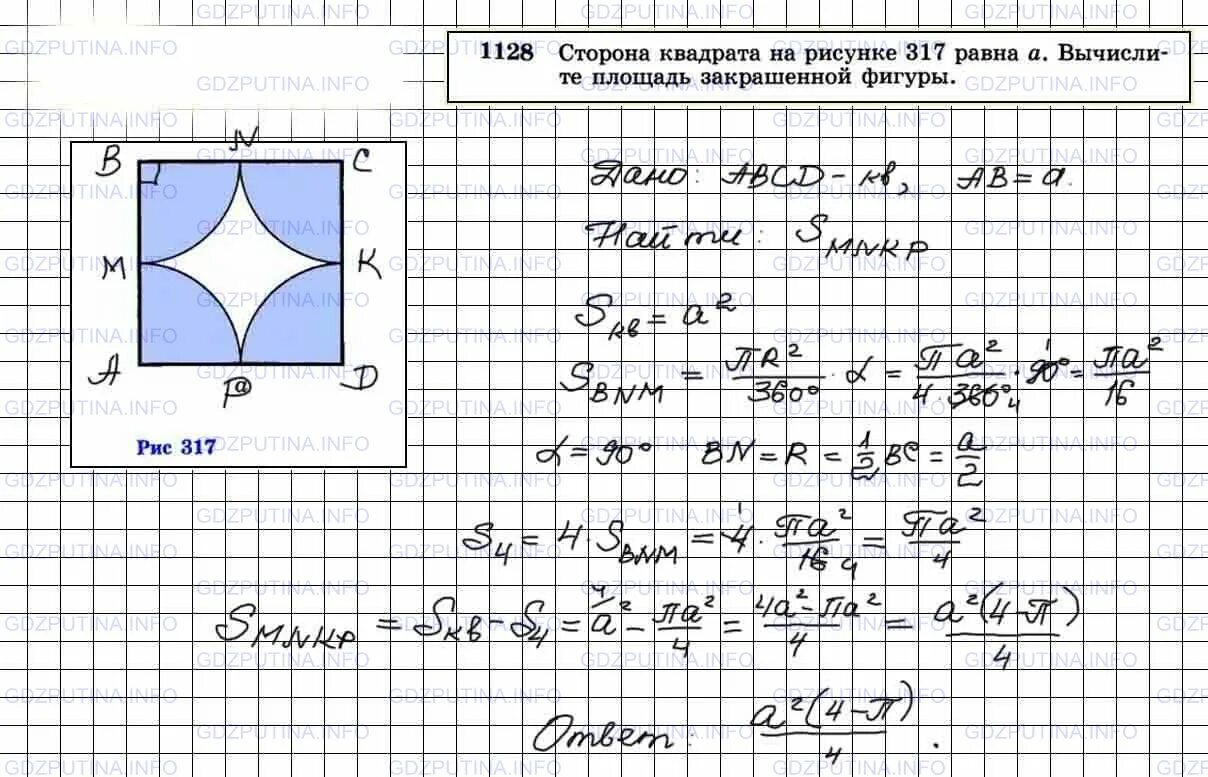 1128 Сторона квадрата на рисунке 317 равна a. Вычисли-
те площадь закрашенной фигуры.
B N C
M K
A P D
Рис 317
Дано: ABCD - кв, AB = a.
Найти: S_MNKP
S_кв = a²
S_BNM = ПR²/360° · α = Пa²/4·360° · 90° = Пa²/16
α = 90° BN = R = 1/2 BC = a/2
S₄ = 4 · S_BNM = 4 · Пa²/16 = Пa²/4
S_MNKP = S_кв - S₄ = a² - Пa²/4 = 4a² - Пa²/4 = a²(4-П)/4
Ответ: a²(4-П)/4 .
GDZPUTINA.INFO